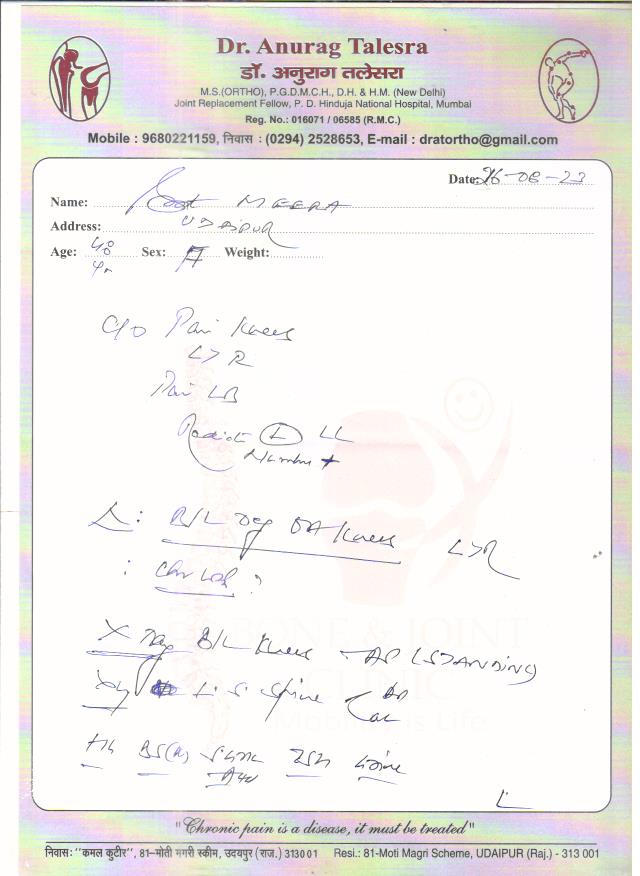 Dr. Anurag Talesra
डॉ. अनुराग तलेसरा
M.S.(ORTHO), P.G.D.M.C.H., D.H. & H.M. (New Delhi)
Joint Replacement Fellow, P. D. Hinduja National Hospital, Mumbai
Reg. No.: 016071 / 06585 (R.M.C.)
Mobile : 9680221159, निवास : (0294) 2528653, E-mail : dratortho@gmail.com
Date: 26-08-23
Name: MEERA
Address: UDAIPUR
Age: 48 yr Sex: F Weight:
C/O Pain Knees
L>R
Pain LB
L LL
Numbness +
Δ: B/L Deg OA Knees L>R
: ?
X Ray B/L Knees - AP (STANDING)
Xray L.S. Spine AP
Lat
Hb BS(R)
Urine
BONE & JOINT
CLINIC
Mobility is Life
"Chronic pain is a disease, it must be treated"
निवास: "कमल कुटीर", 81-मोती मगरी स्कीम, उदयपुर (राज.) 313001 Resi.: 81-Moti Magri Scheme, UDAIPUR (Raj.) - 313 001